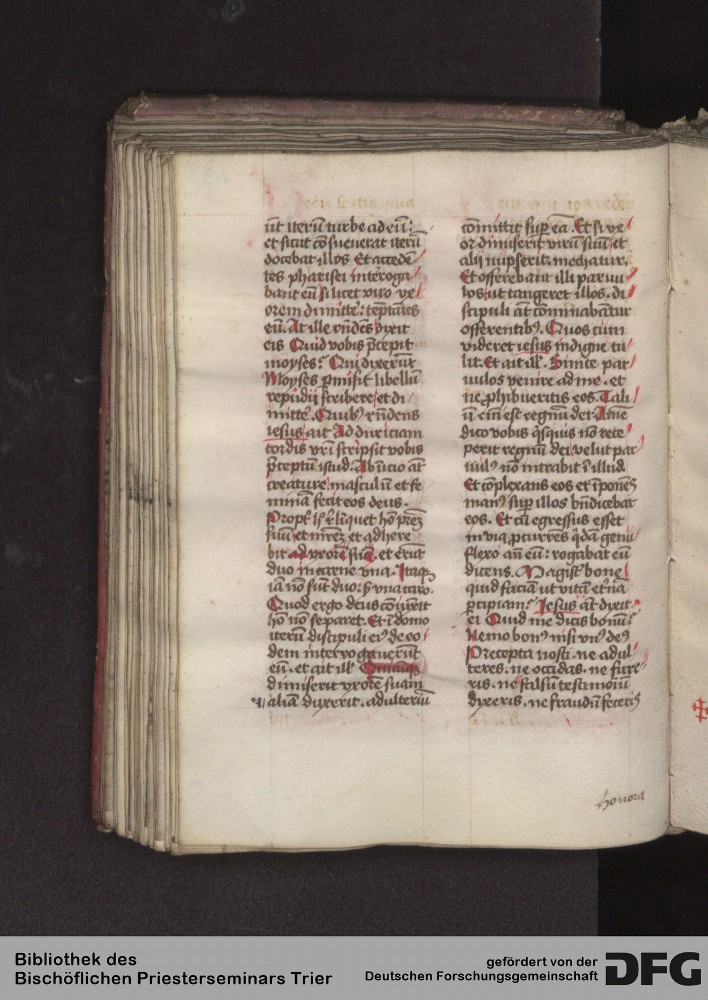 ūt iterū turbe ad eū:
et sicut cōsueuerat iterū
docebat illos Et accedē
tes pharisei interoga
bant eū si licet viro vx
orem dimitte: tēptātes
eū. At ille rn̄dens dixit
eis Quid vobis p̄cepit
moyses? Qui dixerūt
Moyses p̄misit libellū
repudij scribere et di
mitte. Quibꝰ rn̄dens
iesus ait Ad duriciam
cordis vr̄i scripsit vobis
p̄ceptū istud. Ab inicio āt
creature masculū et fe
minam fecit eos deus.
Propt̄ relīquet hō prēꝫ
suū et mrēꝫ et adhere
bit ad vxorē suā. et erūt
duo in carne vna. Itaqꝫ
iā nō sūt duo sꝫ vna caro.
Quod ergo deus cōiūxit
hō nō separet. Et ī domo
iterū discipuli eiꝰ de eo
dem interrogauerūt
eū. et ait ill̄ Quicūqꝫ
dimiserit vxorē suam
aliā duxerit. adulteriū
cōmittit sup̄ eā. Et si vx
or dimiserit virū suū et
alij nupserit. mechatur.
Et offerebant illi paruu
los ut tangeret illos. di
scipuli āt cōminabātur
offerentibꝰ. Quos cum
videret iesus indigne tu
lit. Et ait ill̄. Sinite par
uulos venire ad me. et
ne ꝓhibueritis eos. Tali
ū eīm est regnū dei. Amē
dico vobis quisquis nō rece
perit regnū dei velut par
uulꝰ nō intrabit ī illud.
Et cōplexans eos et īponēs
manꝰ sup̄ illos bn̄dicebat
eos. Et cū egressus esset
in via ꝓcurrēs q̄dā genu
flexo an̄ eū: rogabat eū
dicens. Magist̄ bone
quid faciā ut vitā et̄nā
p̄cipiam? Iesus āt dixit
ei Quid me dicis bonū?
Nemo bonꝰ nisi vnꝰ deꝰ
Precepta nosti. ne adul
teres. ne occidas. ne fure
ris. ne falsū testimoiū
dixeris. ne fraudū feceris
honora
Bibliothek des
Bischöflichen Priesterseminars Trier
gefördert von der
Deutschen Forschungsgemeinschaft
DFG